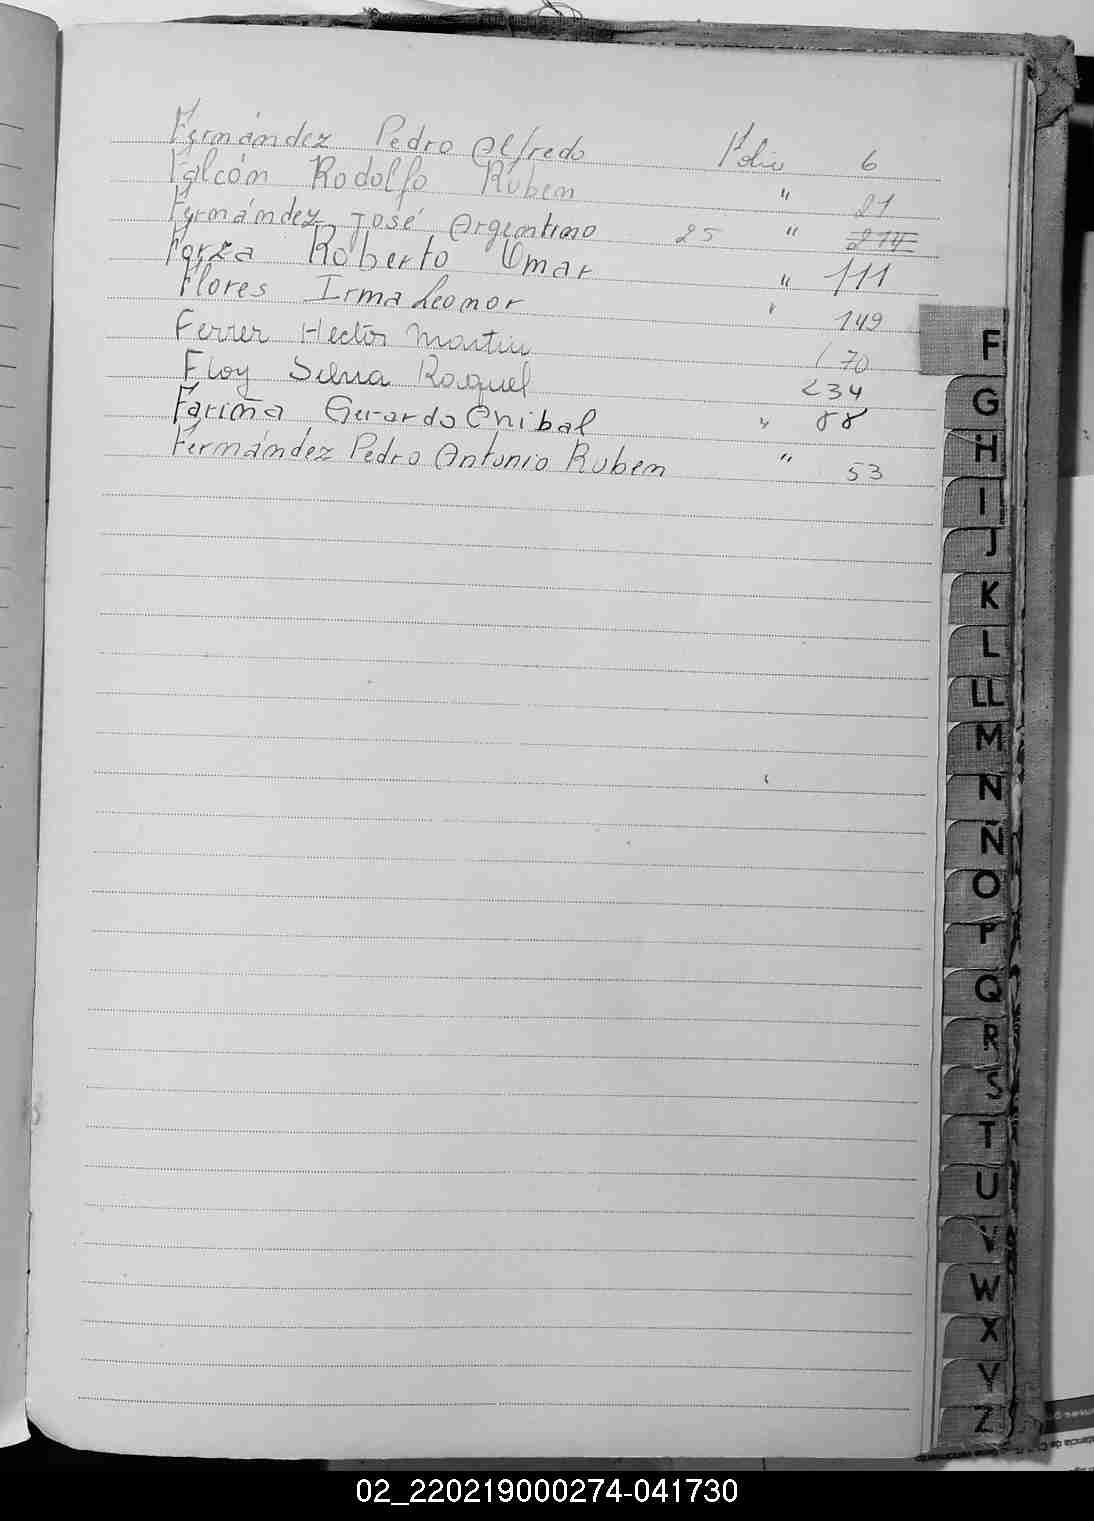 Fernández Pedro Alfredo Folio 6
Falcón Rodolfo Rúben " 21
Fernández José Argentino 25 " 214
Forza Roberto Omar " 111
Flores Irma Leonor " 149
Ferrer Hector Martin 170
Floy Silvia Raquel 234
Fariña Gerardo Anibal " 88
Fernández Pedro Antonio Ruben " 53
F
G
H
I
J
K
L
LL
M
N
Ñ
O
P
Q
R
S
T
U
V
W
X
Y
Z
02_220219000274-041730